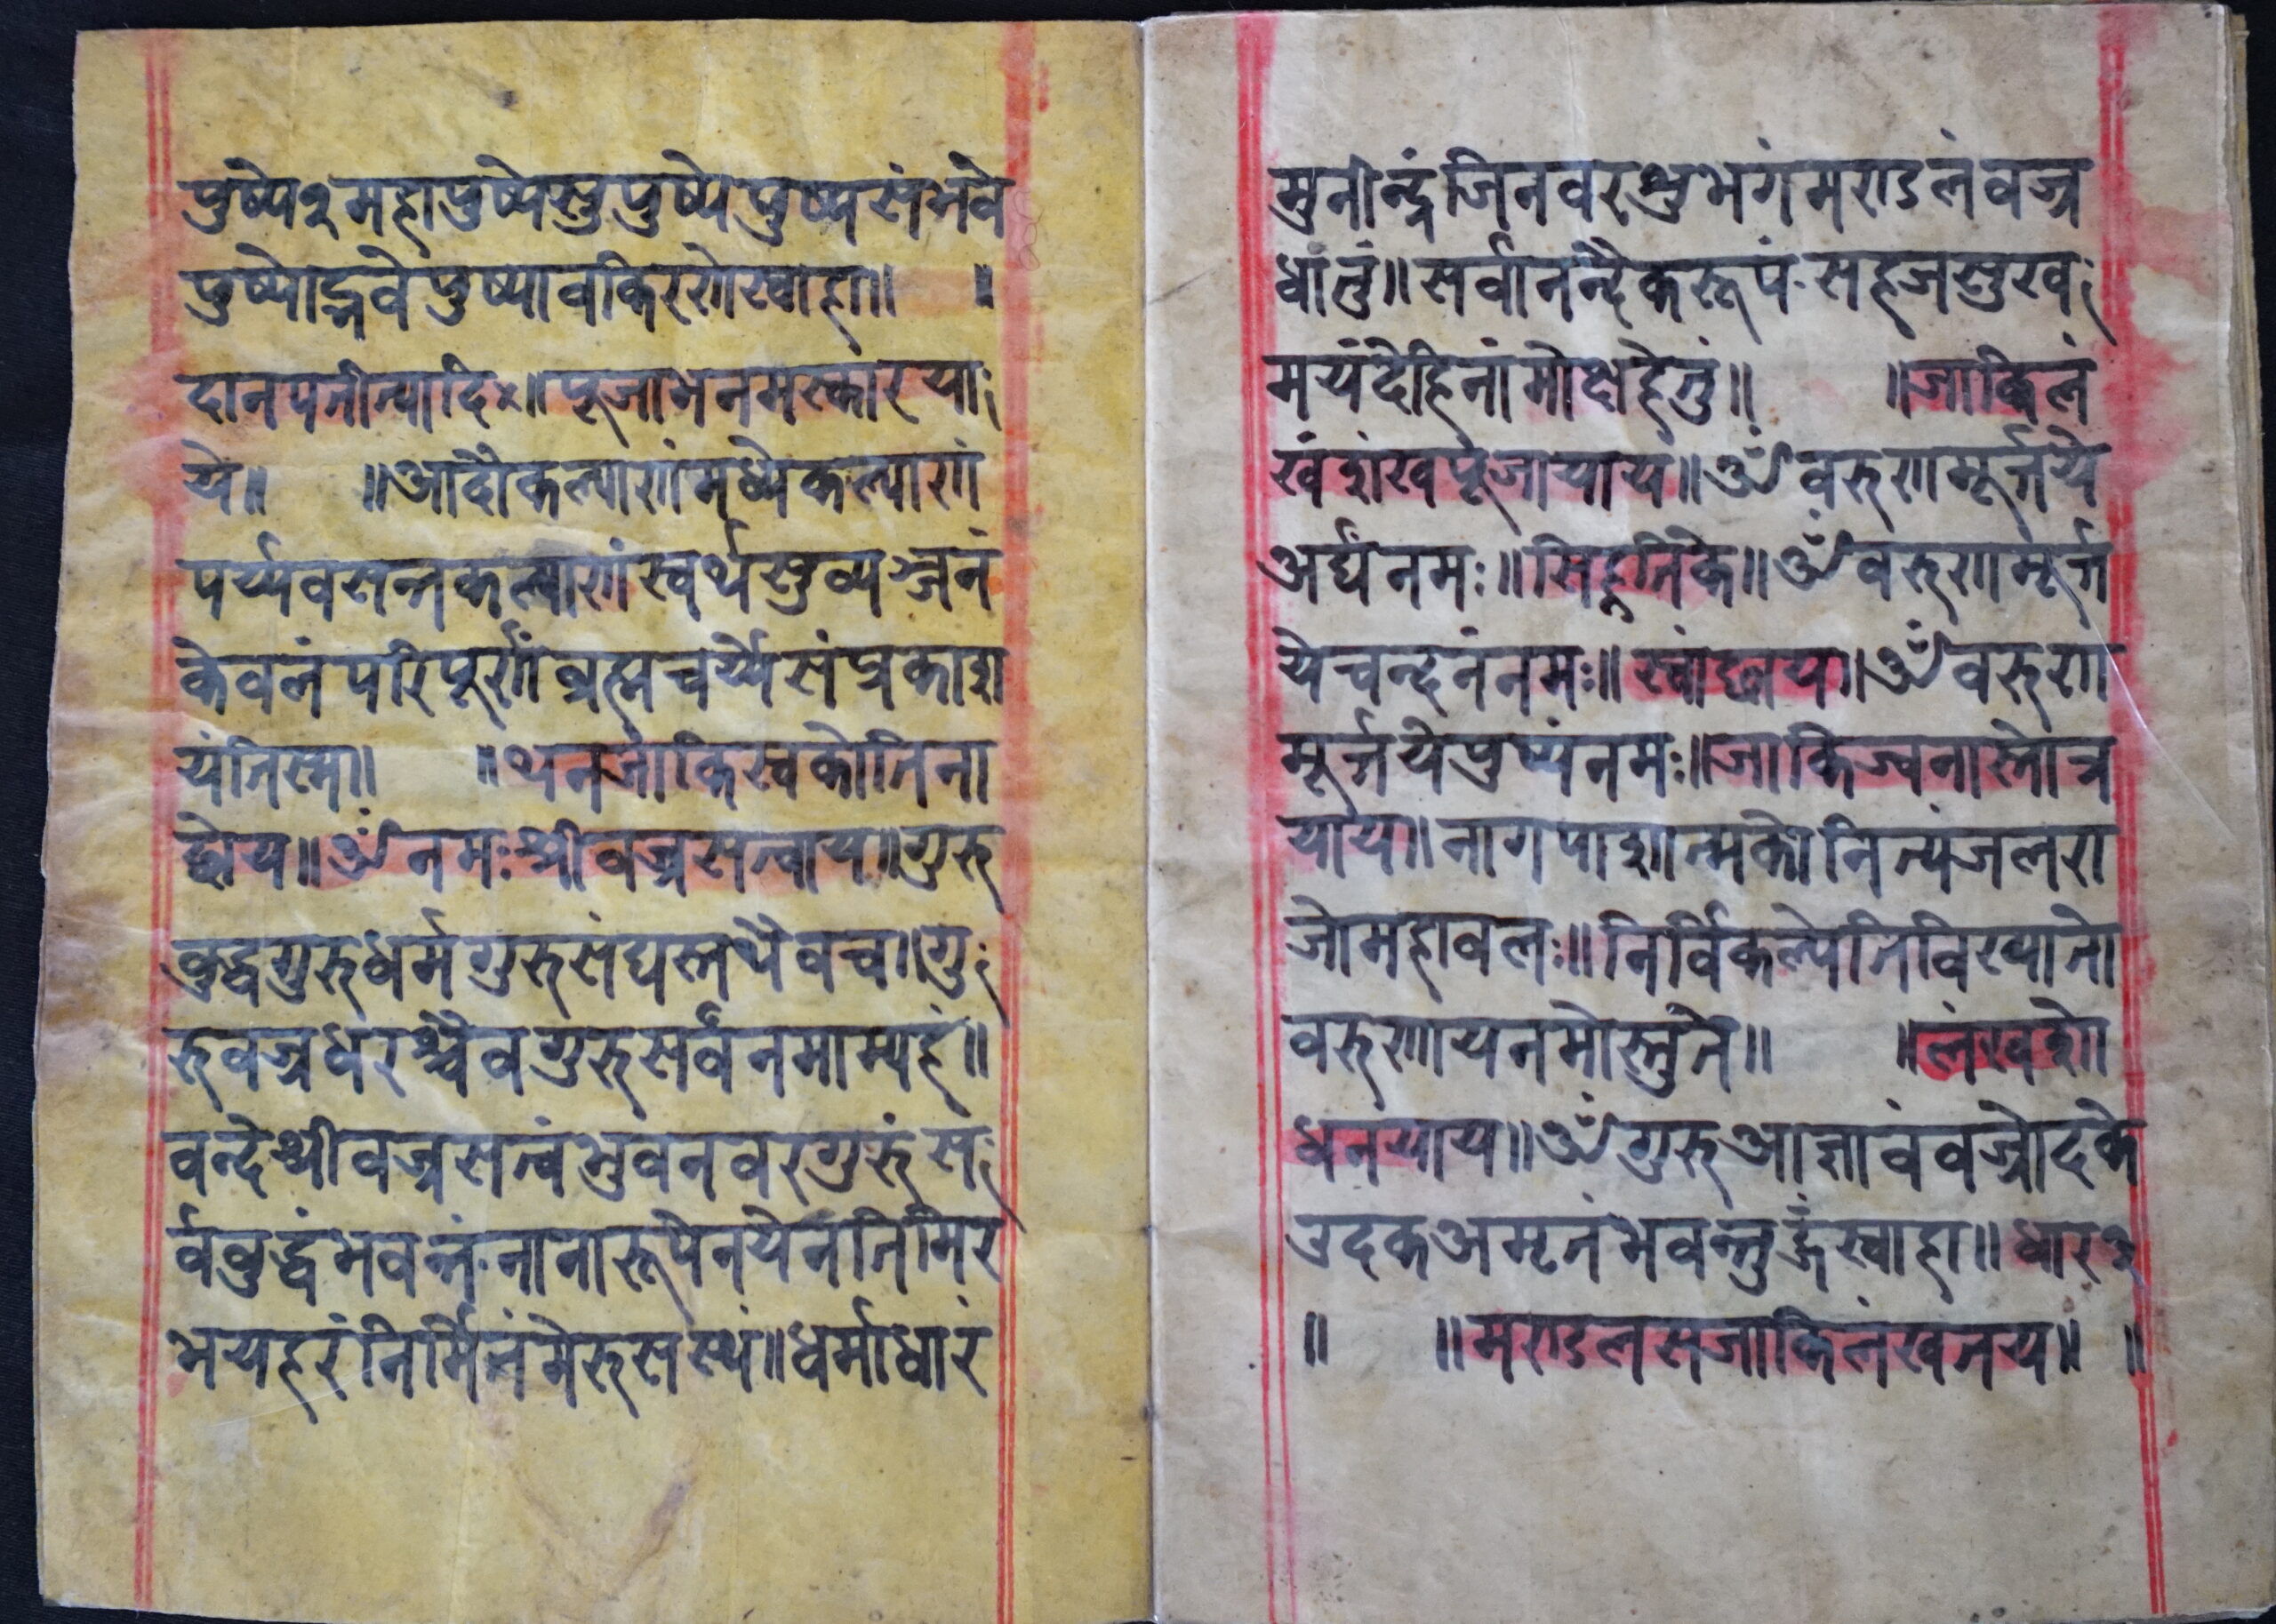 पुष्पे२महापुष्पेसुपुष्पेपुष्पसंभवे
पुष्पोद्भवेपुष्पावकिरणेस्वाहा॥ ॥
दानपतीत्यादि॥पूजाभनमस्कारया
ये॥ ॥आदौकल्याणंमध्येकल्याणं
पर्य्यवसन्तकल्याणंस्वर्थसुव्यञ्जनं
केवलंपरिपूर्णंब्रह्मचर्य्यंसंप्रकाश
यंतिस्म॥ ॥थनजाकिस्वकोतिना
द्योय॥ॐनमःश्रीवज्रसत्वाय॥गुरु
वुद्धगुरुधर्मगुरुसंघस्तथैवच॥गु
रुवज्रधरश्चैवगुरुसर्वंनमाम्यहं॥
वन्देश्रीवज्रसत्वंभुवनवरगुरुंस
र्ववुद्धंभवन्तंनानारूपेनयेनतिमिर
भयहरंनिर्मितंमेरुसस्थं॥धर्माधारं
मुनीन्द्रंजिनवरशुभगंमण्डलंवज्र
धांतुं॥सर्वानन्दैकरूपंसहजसुख
मयंदेहिनांमोक्षहेतुं॥ ॥जाकिलं
खंशंखपूजायाय॥ॐवरुणमूर्त्तये
अर्घंनमः॥सिह्लतिके॥ॐवरुणमूर्त्त
येचन्दनंनमः॥स्वांछाय॥ॐवरुण
मूर्त्तयेपुष्पंनमः॥जाकिज्वनास्तोत्र
याय॥नागपाशात्मकोनित्यंजलरा
जोमहावलः॥निर्विकल्पेतिविख्यातो
वरुणायनमोस्तुते॥ ॥लंखदशे
धनयाय॥ॐगुरुआज्ञावंवज्रोदके
उदकअमृतंभवन्तुह्रूंस्वाहा॥धार३
॥ ॥मण्डलसजाकिलंखतय॥ ॥